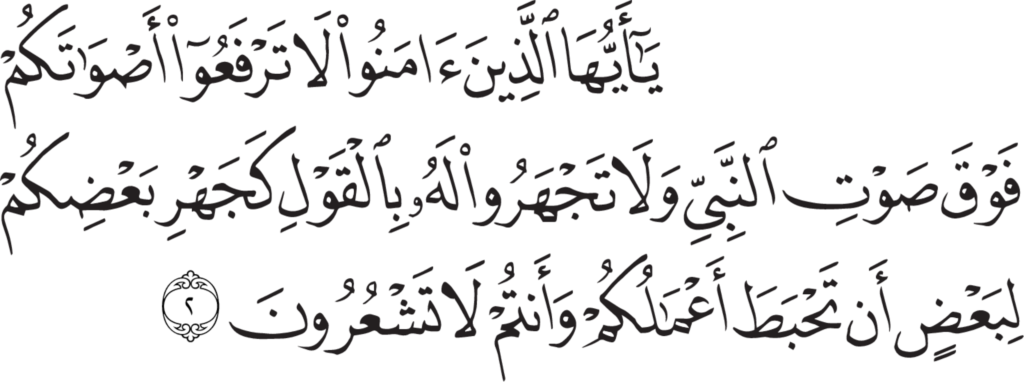 يَٰٓأَيُّهَا ٱلَّذِينَ ءَامَنُوا۟ لَا تَرْفَعُوٓا۟ أَصْوَٰتَكُمْ
فَوْقَ صَوْتِ ٱلنَّبِىِّ وَلَا تَجْهَرُوا۟ لَهُۥ بِٱلْقَوْلِ كَجَهْرِ بَعْضِكُمْ
لِبَعْضٍ أَن تَحْبَطَ أَعْمَٰلُكُمْ وَأَنتُمْ لَا تَشْعُرُونَ ٢